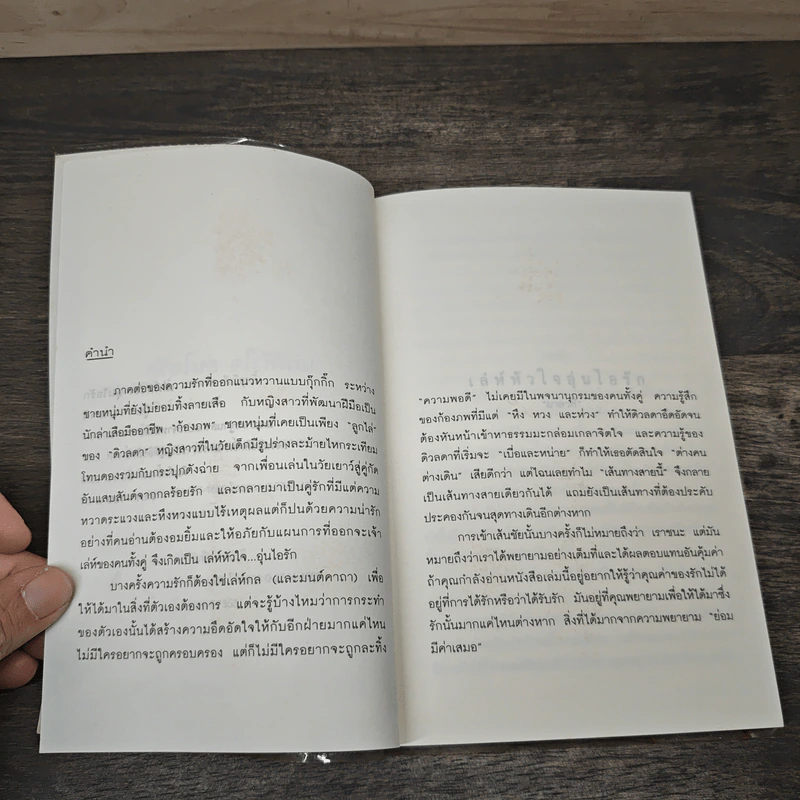 คำนำ
ภาคต่อของความรักที่ออกแนวหวานแบบกุ๊กกิ๊ก ระหว่าง
ชายหนุ่มที่ยังไม่ยอมทิ้งลายเสือ กับหญิงสาวที่พัฒนาฝีมือเป็น
นักล่าเสือมืออาชีพ "ก้องภพ" ชายหนุ่มที่เคยเป็นเพียง "ลูกไล่"
ของ "ดิวลดา" หญิงสาวที่ในวัยเด็กมีรูปร่างละม้ายไหกระเทียม
โทนดองรวมกับกระปุกตังฉ่าย จากเพื่อนเล่นในวัยเยาว์สู่คู่กัด
อันแสบสันต์จากกลร้อยรัก และกลายมาเป็นคู่รักที่มีแต่ความ
หวาดระแวงและหึงหวงแบบไร้เหตุผลแต่ก็ปนด้วยความน่ารัก
อย่างที่คนอ่านต้องอมยิ้มและให้อภัยกับแผนการที่ออกจะเจ้า
เล่ห์ของคนทั้งคู่ จึงเกิดเป็น เล่ห์หัวใจ...อุ่นไอรัก
บางครั้งความรักก็ต้องใช้เล่ห์กล (และมนต์คาถา) เพื่อ
ให้ได้มาในสิ่งที่ตัวเองต้องการ แต่จะรู้บ้างไหมว่าการกระทำ
ของตัวเองนั้นได้สร้างความอึดอัดใจให้กับอีกฝ่ายมากแค่ไหน
ไม่มีใครอยากจะถูกครอบครอง แต่ก็ไม่มีใครอยากจะถูกละทิ้ง
เล่ห์หัวใจอุ่นไอรัก
"ความพอดี" ไม่เคยมีในพจนานุกรมของคนทั้งคู่ ความรู้สึก
ของก้องภพที่มีแต่ "หึง หวง และห่วง" ทำให้ดิวลดาอึดอัดจน
ต้องหันหน้าเข้าหาธรรมมะกล่อมเกลาจิตใจ และความรู้ของ
ดิวลดาที่เริ่มจะ "เบื่อและหน่าย" ก็ทำให้เธอตัดสินใจ "ต่างคน
ต่างเดิน" เสียดีกว่า แต่ไฉนเลยทำไม "เส้นทางสายนี้" จึงกลาย
เป็นเส้นทางสายเดียวกันได้ แถมยังเป็นเส้นทางที่ต้องประคับ
ประคองกันจนสุดทางเดินอีกต่างหาก
การเข้าเส้นชัยนั้นบางครั้งก็ไม่หมายถึงว่า เราชนะ แต่มัน
หมายถึงว่าเราได้พยายามอย่างเต็มที่และได้ผลตอบแทนอันคุ้มค่า
ถ้าคุณกำลังอ่านหนังสือเล่มนี้อยู่อยากให้รู้ว่าคุณค่าของรักไม่ได้
อยู่ที่การได้รักหรือว่าได้รับรัก มันอยู่ที่คุณพยายามเพื่อให้ได้มาซึ่ง
รักนั้นมากแค่ไหนต่างหาก สิ่งที่ได้มากจากความพยายาม "ย่อม
มีค่าเสมอ"